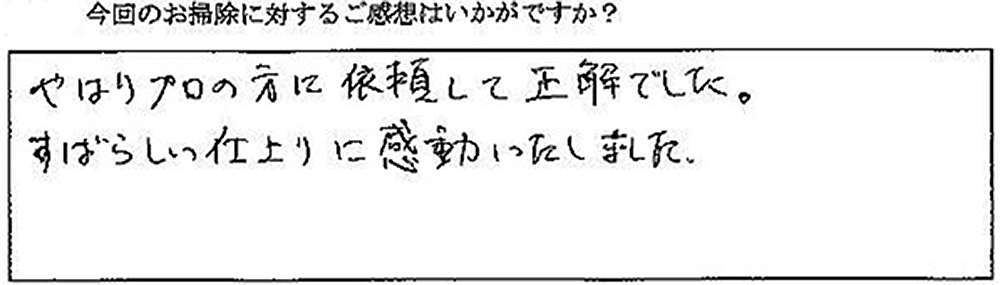 今回のお掃除に対するご感想はいかがですか？
やはりプロの方に依頼して正解でした。
すばらしい仕上りに感動いたしました.